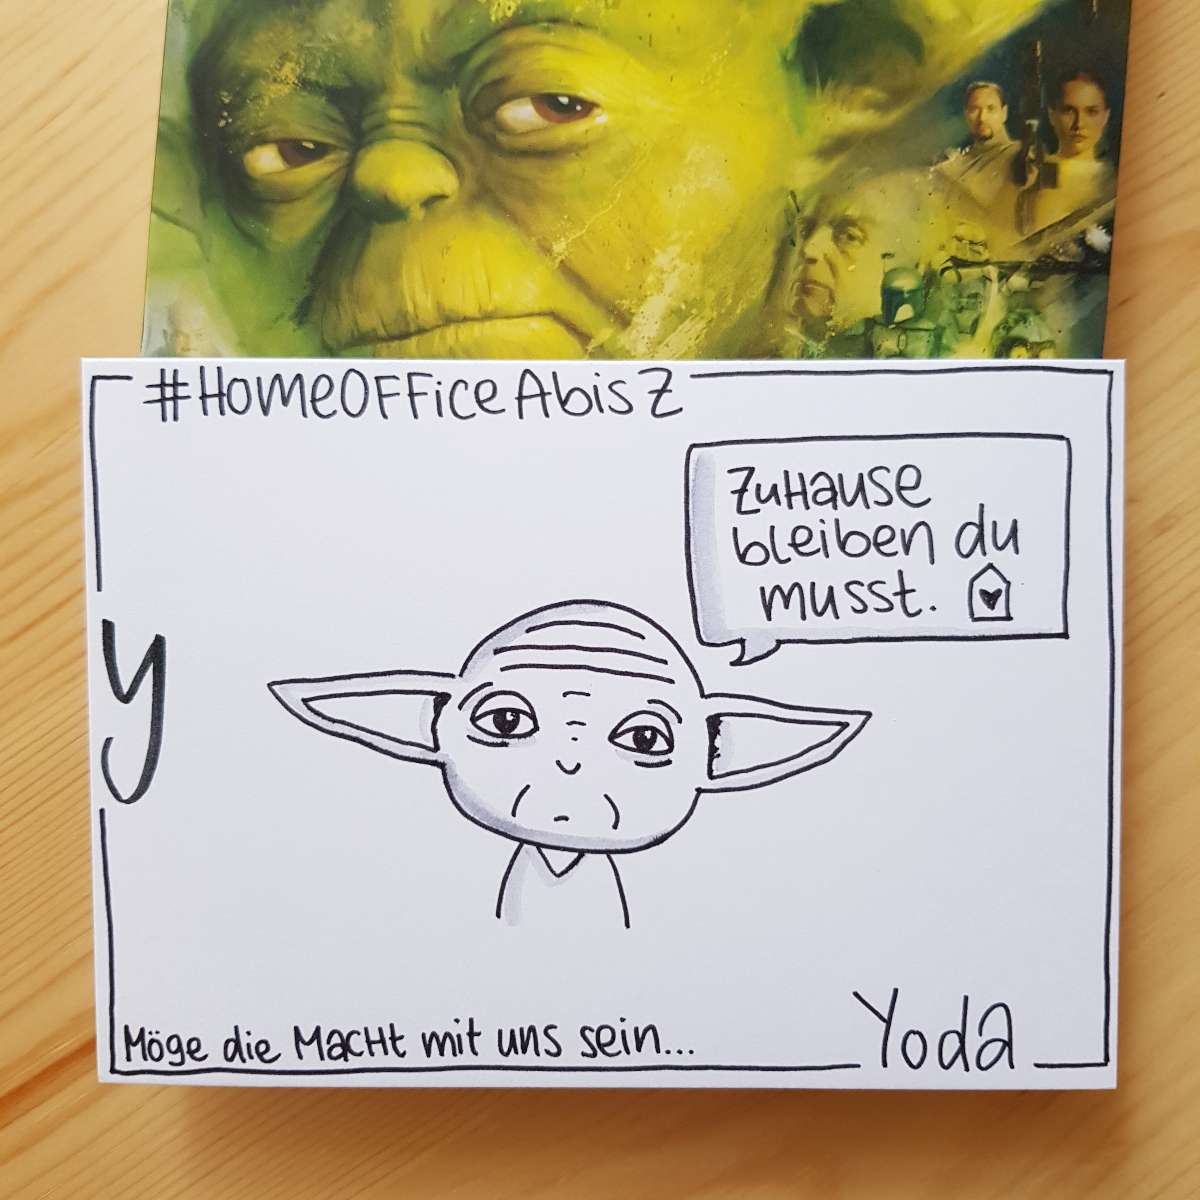 #HomeOfficeAbisZ
Zuhause
bleiben du
musst.
y
Möge die Macht mit uns sein...
Yoda